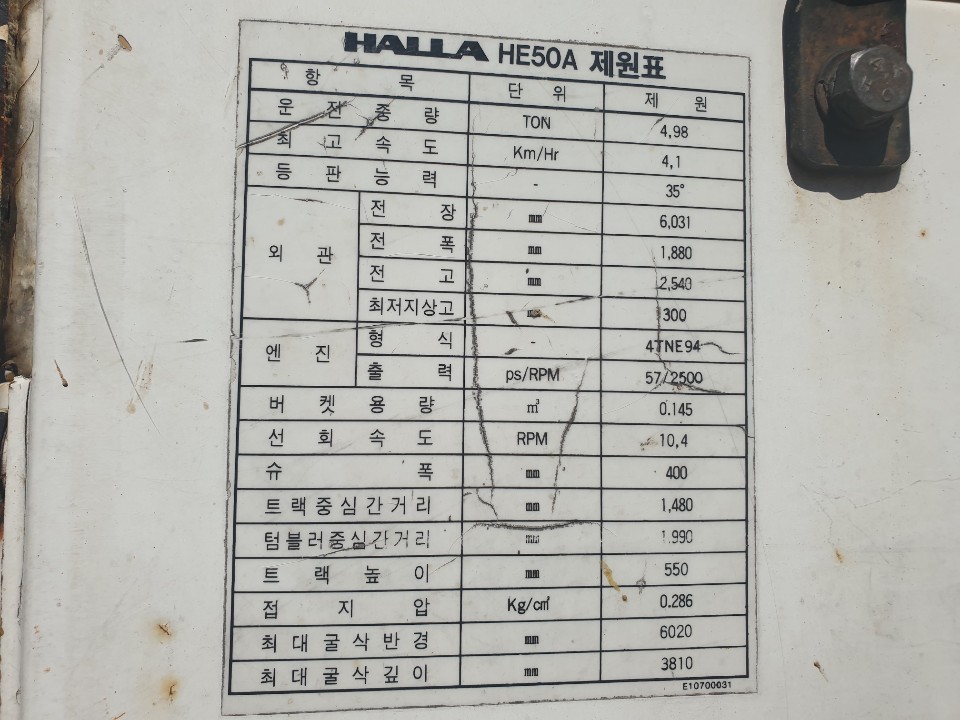 HALLA HE50A 제원표
항 목 단 위 제 원
운 전 중 량 TON 4,98
최 고 속 도 Km/Hr 4,1
등 판 능 력 - 35°
외 관 전 장 mm 6,031
전 폭 mm 1,880
전 고 mm 2,540
최저지상고 mm 300
엔 진 형 식 - 4TNE94
출 력 ps/RPM 57/2500
버 켓 용 량 ㎥ 0.145
선 회 속 도 RPM 10,4
슈 폭 mm 400
트랙중심간거리 mm 1,480
텀블러중심간거리 mm 1.990
트 랙 높 이 mm 550
접 지 압 Kg/㎠ 0.286
최대굴삭반경 mm 6020
최대굴삭깊이 mm 3810
E10700031